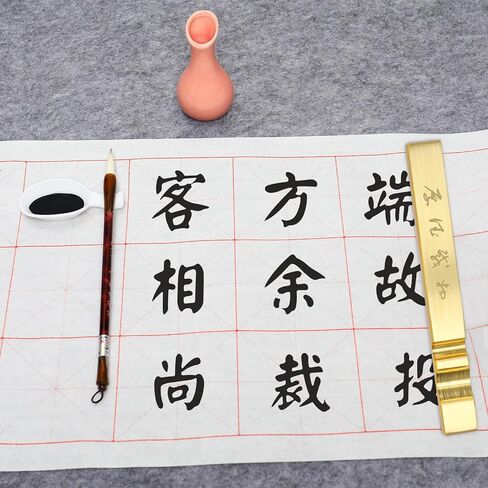 客方端
相余故
尚裁投